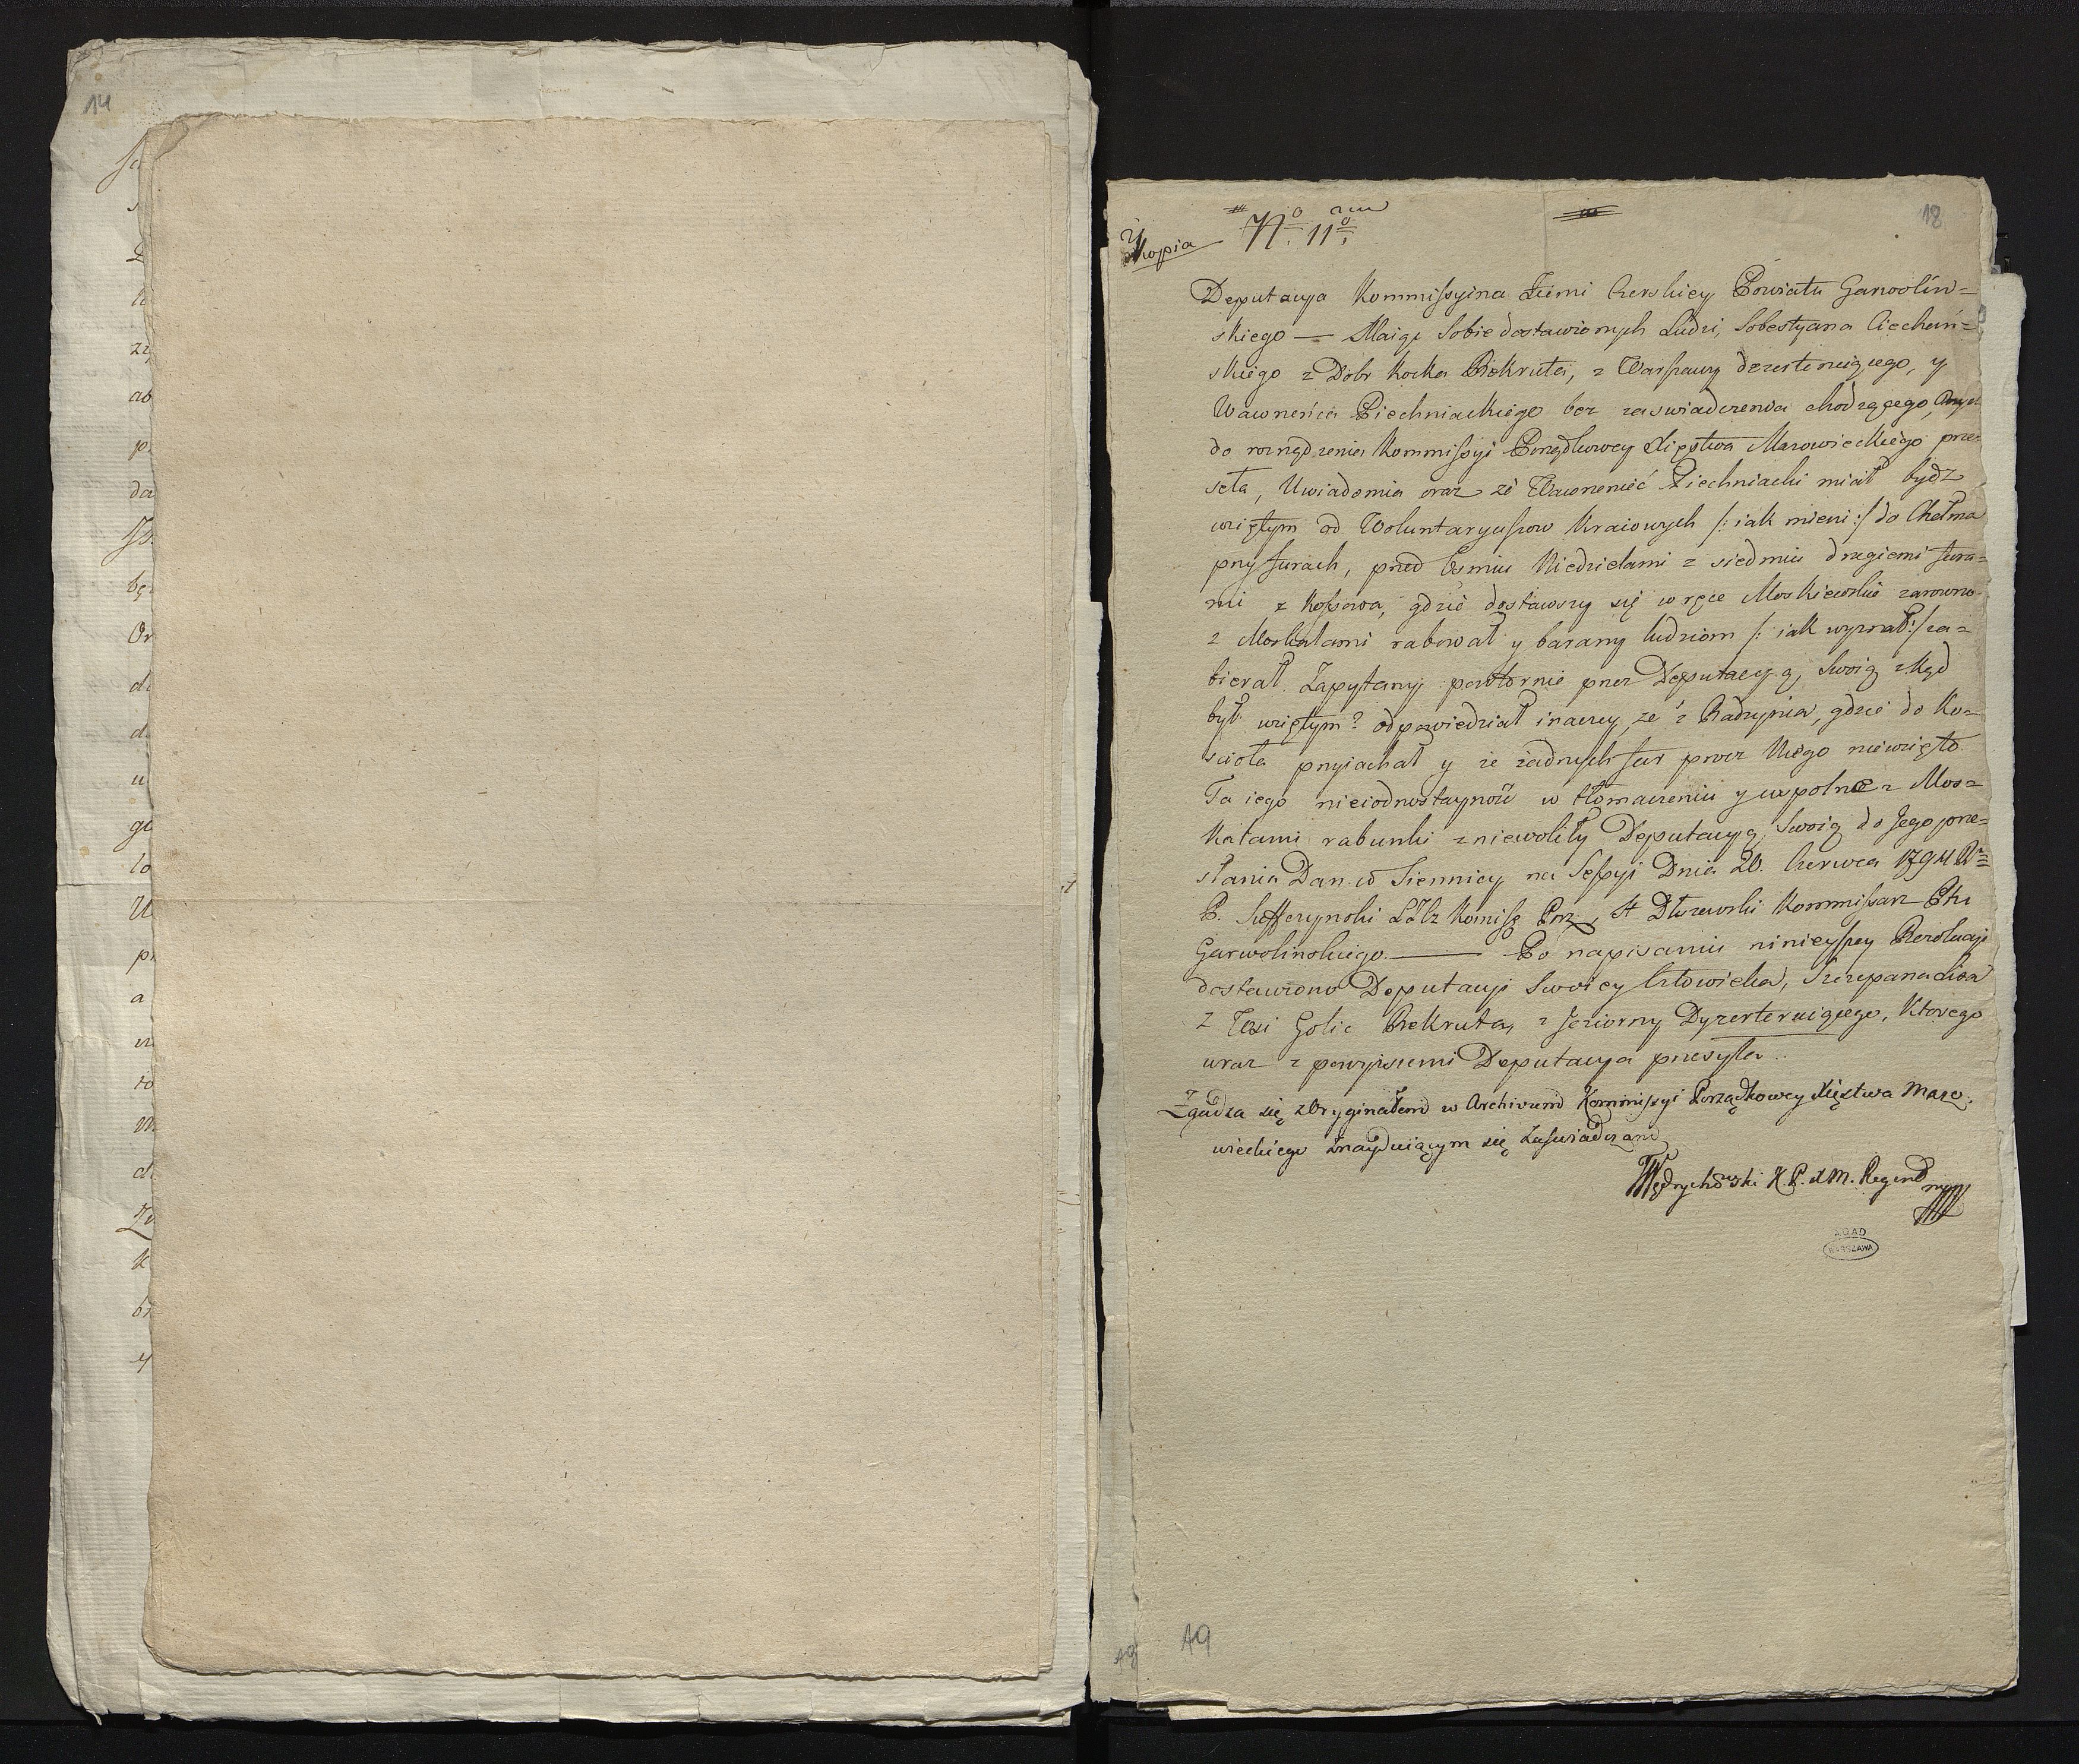 14
18
Kopia
No 11o
Deputacya Kommissyina Ziemi Czerskiey Powiatu Garwolin=
skiego — Maiąc Sobie dostawionych Ludzi, Sobestyana Ciechań=
skiego z Dóbr Kocka Rekruta, z Warszawy dezerteruiącego, y
Wawrzeńca Piechniackiego bez zaswiadczenia chodzącego,
do rozrządzenia Kommissyi Porządkowey Xięstwa Mazowieckiego prze=
seła, Uwiadomia oraz że Wawrzeniec Piechniacki miał bydz
wziętym od Woluntaryuszow Kraiowych /: iak mieni :/ do Chełma
przy furach, przed Osmiu Niedzielami z siedmiu drugiemi fura=
mi z Kossowa, gdzie dostawszy się w ręce Moskiewskie zarowno
z Moskalami rabował y barany ludziom /: iak wyznał :/ za=
bierał. Zapytany powtornie przez Deputacyą Swoią zkąd
był wziętym? odpowiedział inaczey, że z Radzynia, gdzie do Ko=
scioła przyiachał y że żadnych fur przez Niego niewzięto.
Ta iego nieiednostaynosć w tłomaczeniu y wspolne z Mos=
kalami rabunki zniewoliły Deputacyą Swoią do Jego prze=
słania Dan w Siennicy na Sessyi Dnia 20. Czerwca 1794 R
P. Suffczynski Komiss Prz, St Dłuzewski Kommissarz Ptu
Garwolinskiego. — Po napisaniu ninieyszey Rezolucyi
dostawiono Deputacyi Swoiey Człowieka, Szczepana Lisa
z Wsi Golic Rekruta, z Jeziorny Dyzerteruiącego, Ktorego
wraz z powyższemi Deputacya przesyła ..
Zgadza się z Oryginałem w Archivum Kommissyi Porządkowey Xięstwa Mazo.
wieckiego znayduiącym się Zaswiadczam
Wędrychowski K. P. X M. Regent
mpp
AGAD
WARSZAWA
19
19